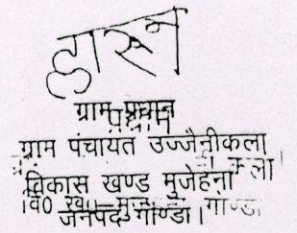 ग्राम प्रधान
ग्राम पंचायत उज्जैनीकला
विकास खण्ड मुजेहना
जनपद-गोण्डा।